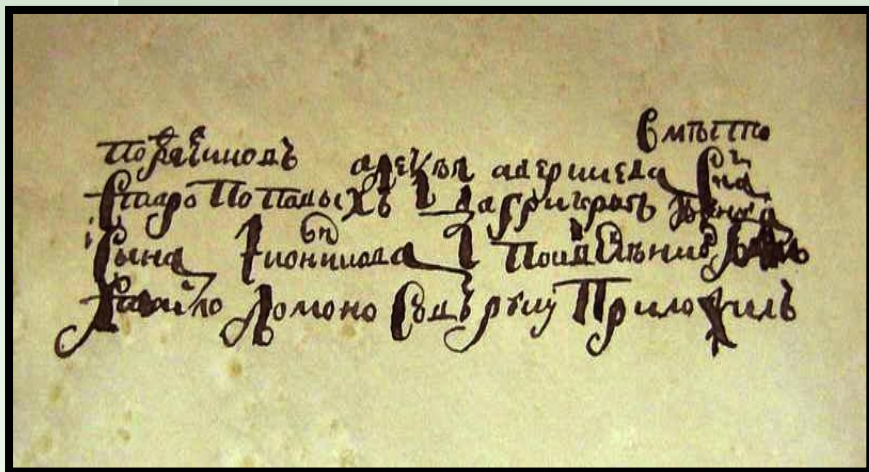 Вмѣсто
подрядчиковъ алексѣя аверкиева сна
старопоповыхъ да григорья
сына иконникова по
Михайло Ломоносовъ руку приложилъ